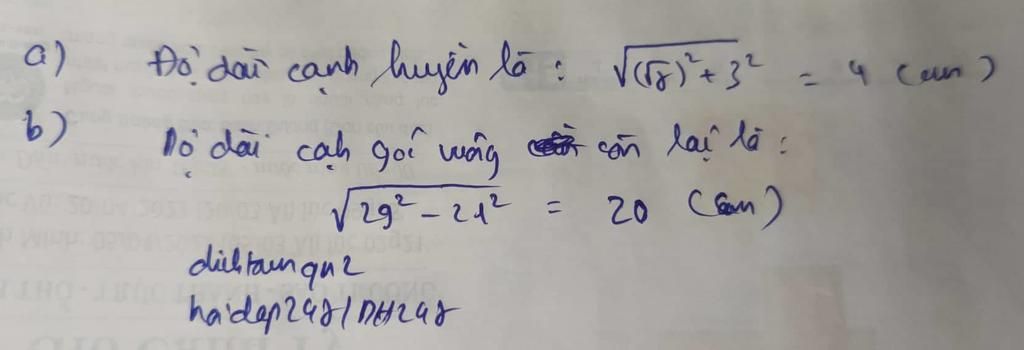 a) Độ dài cạnh huyền là : √((√7)² + 3²) = 4 (cm)
b) Độ dài cạh goí vuông còn lại là :
√(29² − 21²) = 20 (cm)
dichtamqn2
hoidap247/DH247